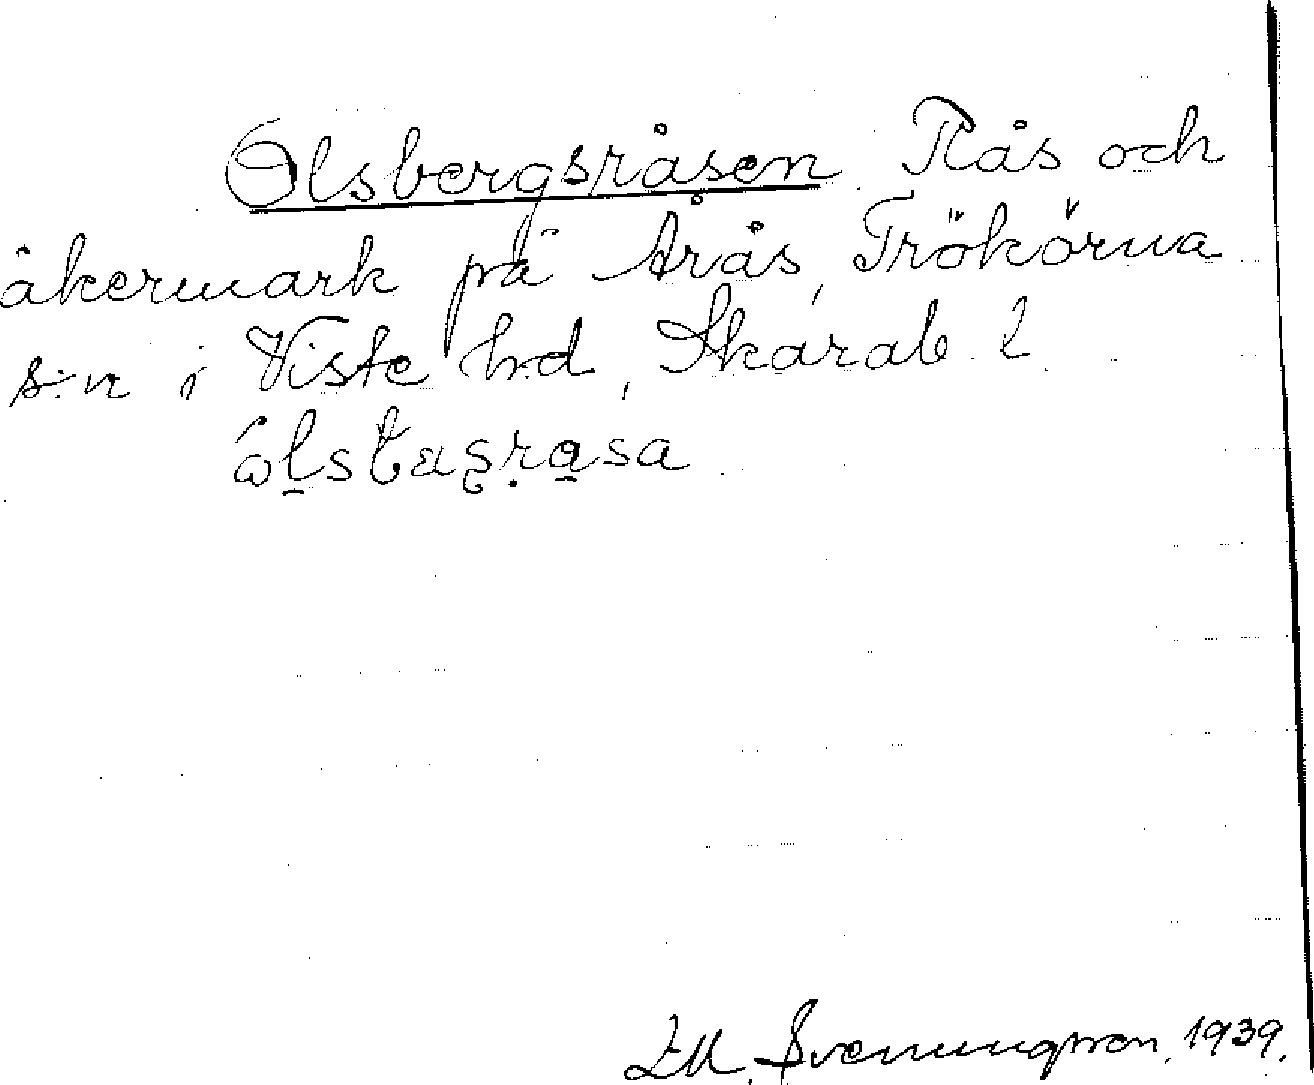 Olsbergsråsen Rås och
åkermark på Årås, Trökörna
s:n i Viste h:d, Skarab. l.
Svenungsson. 1939.